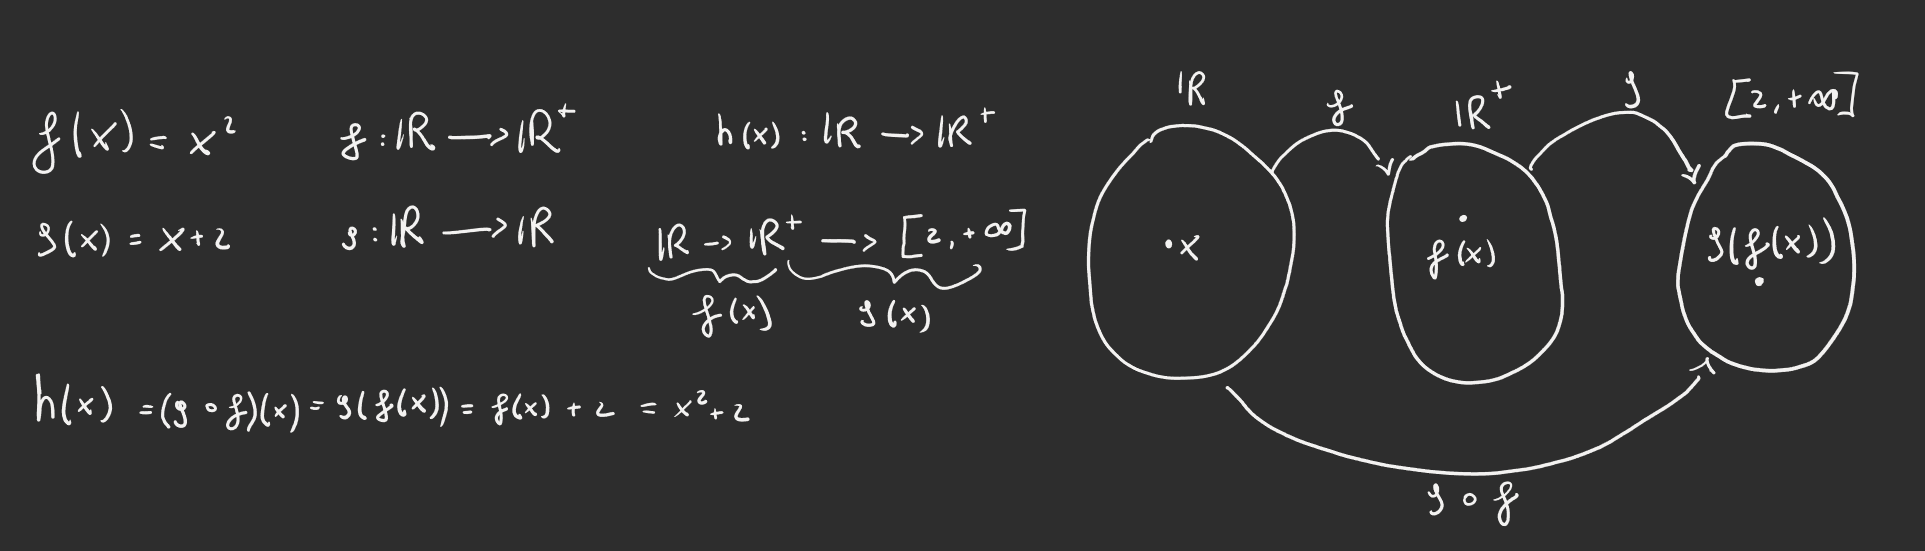 f(x) = x² f : ℝ ⟶ ℝ⁺ h(x) : ℝ → ℝ⁺
g(x) = x+2 g : ℝ ⟶ ℝ
ℝ → ℝ⁺ → [2, +∞]
f(x) g(x)
h(x) = (g ∘ f)(x) = g(f(x)) = f(x) + 2 = x² + 2
ℝ f ℝ⁺ g [2, +∞]
• x f(x) g(f(x))
g ∘ f